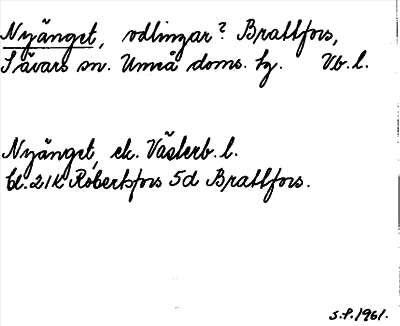 Nyänget, odlingar? Brattfors,
Sävars sn. Umeå doms. hg. Vb. l.
Nyänget, ek. Västerb. l.
bl. 21K Robertsfors 5d Brattfors.
S.P. 1961.